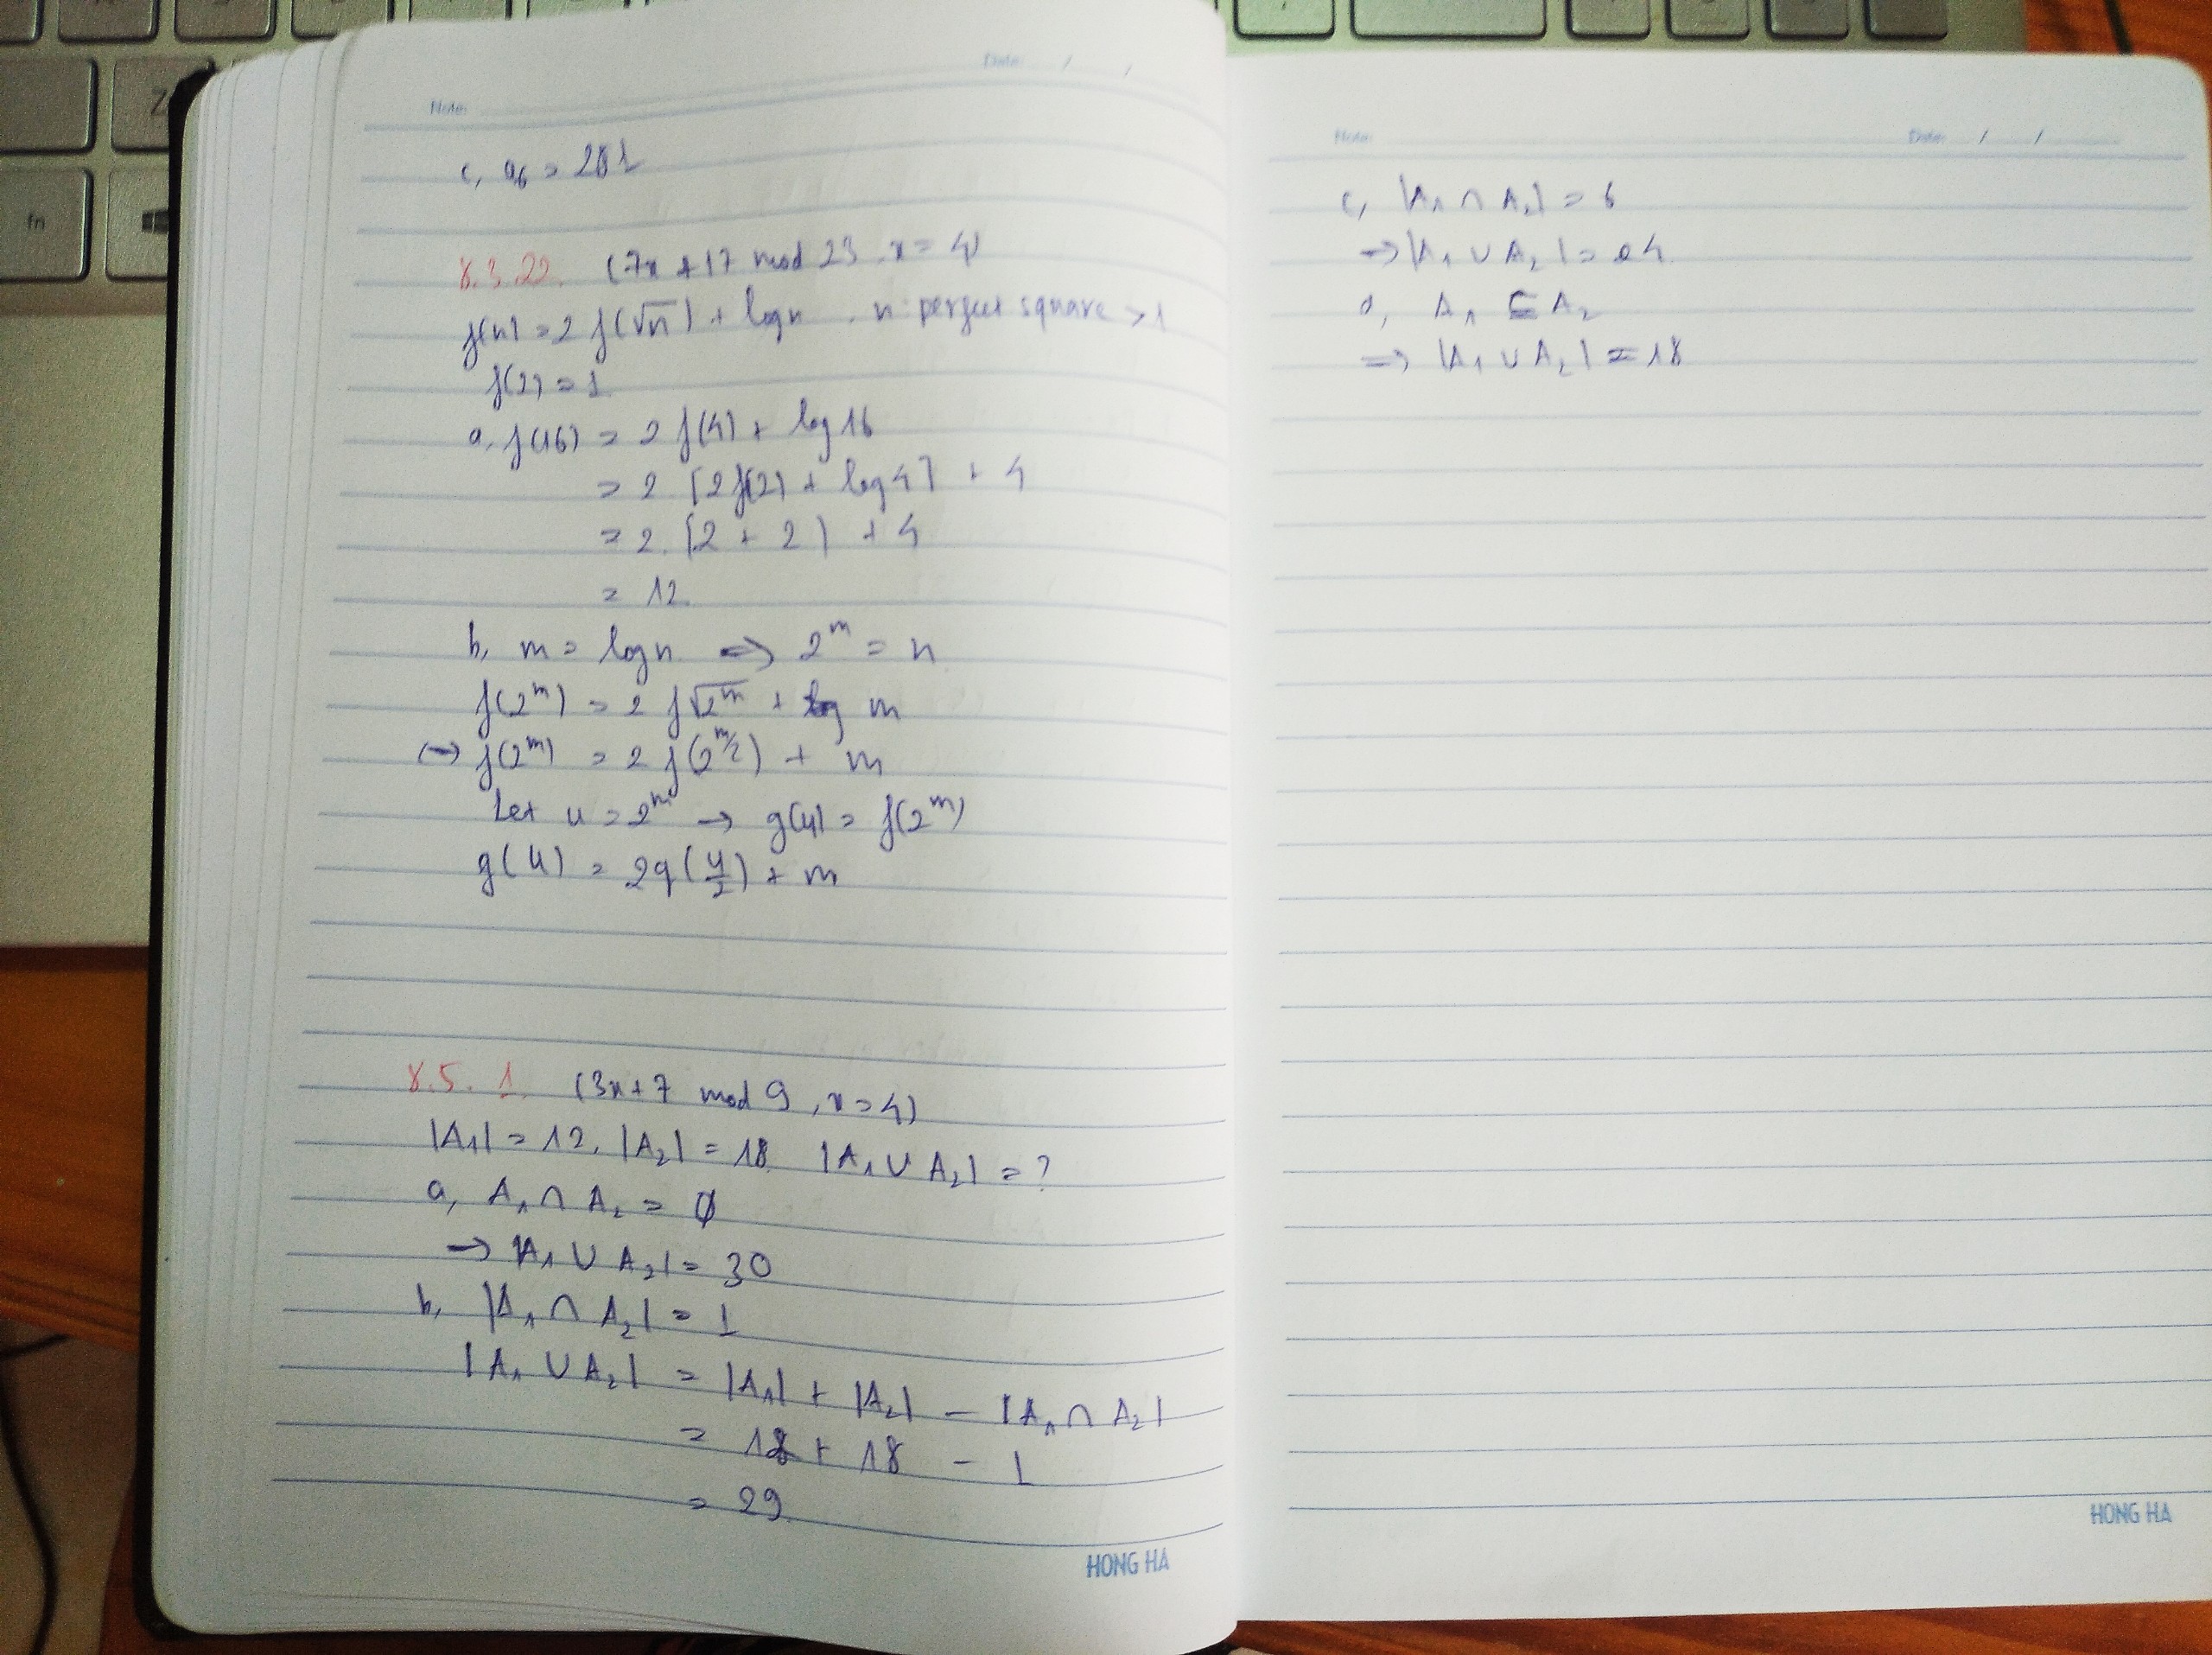 Note: Date: / /
c, a₆ = 281
8.3.22. (7x + 17 mod 23, x = 4)
f(n) = 2 f(√n) + log n . n: perfect square > 1
f(2) = 1
a. f(16) = 2 f(4) + log 16
= 2. [2f(2) + log 4] + 4
= 2. [2 + 2] + 4
= 12.
b, m = log n. => 2^m = n
f(2^m) = 2 f√2^m + log m
(→) f(2^m) = 2 f(2^m/2) + m
Let u = 2^m → g(u) = f(2^m)
g(u) = 2g(u/2) + m
8.5. 1. (3x + 7 mod 9, x = 4)
|A₁| = 12, |A₂| = 18. |A₁ ∪ A₂| = ?
a, A₁ ∩ A₂ = ∅
→ |A₁ ∪ A₂| = 30
b, |A₁ ∩ A₂| = 1
|A₁ ∪ A₂| = |A₁| + |A₂| - |A₁ ∩ A₂|
= 12 + 18 - 1
= 29.
HONG HA
Note: Date: / /
c, |A₁ ∩ A₂| = 6
→ |A₁ ∪ A₂| = 24.
d, A₁ ⊆ A₂
=> |A₁ ∪ A₂| = 18
HONG HA
fn
Z